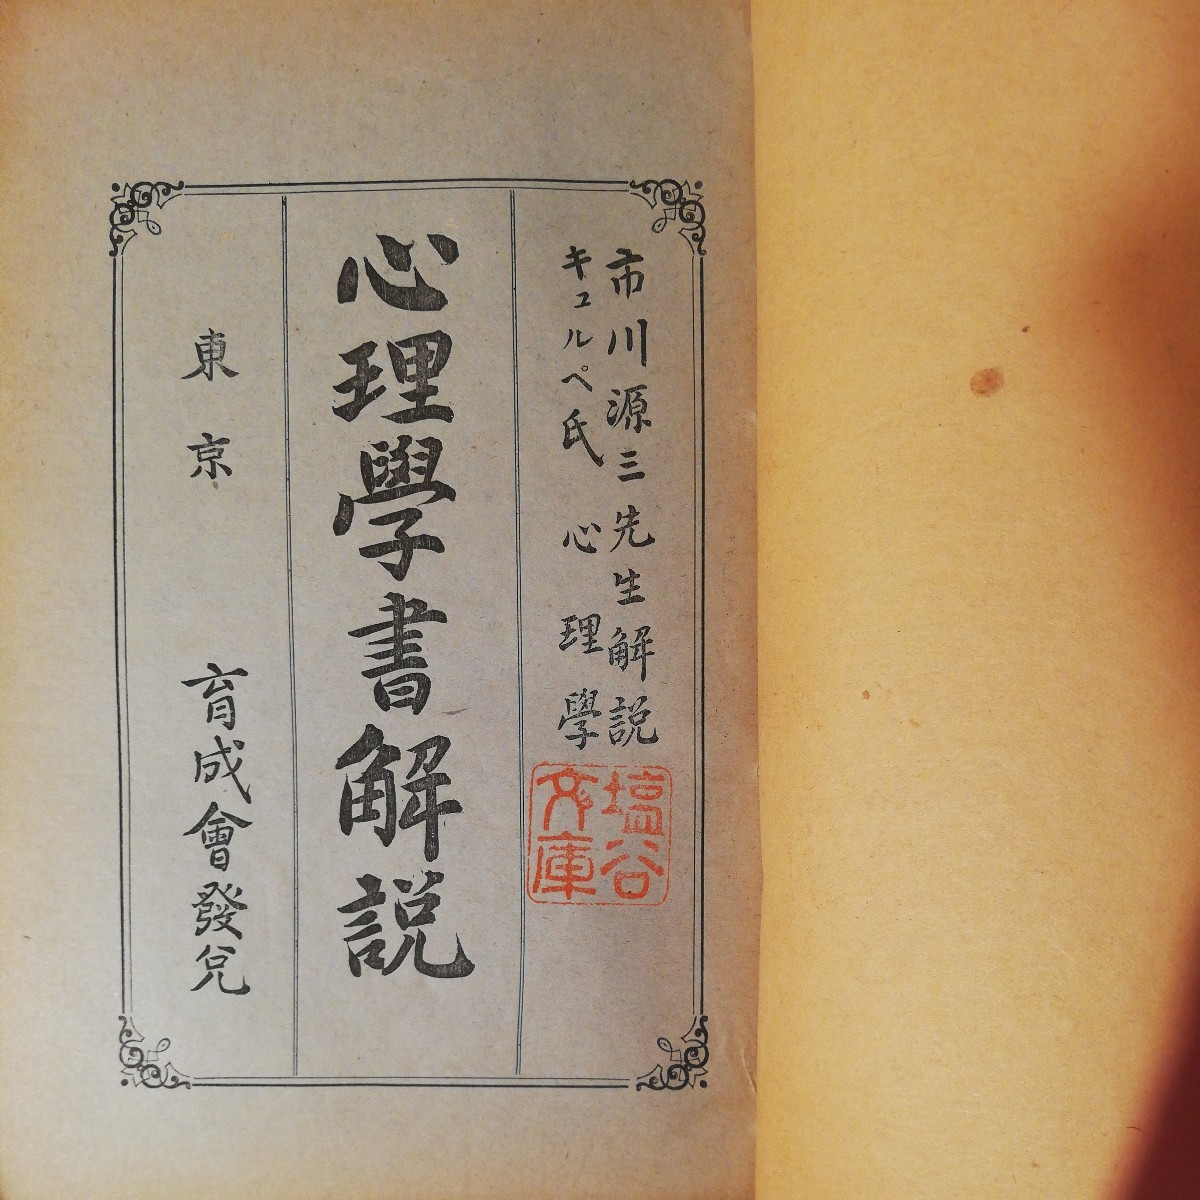 市川源三先生解説
キュルペ氏 心理學
塩谷
文庫
心理學書解説
東京 育成會發兌